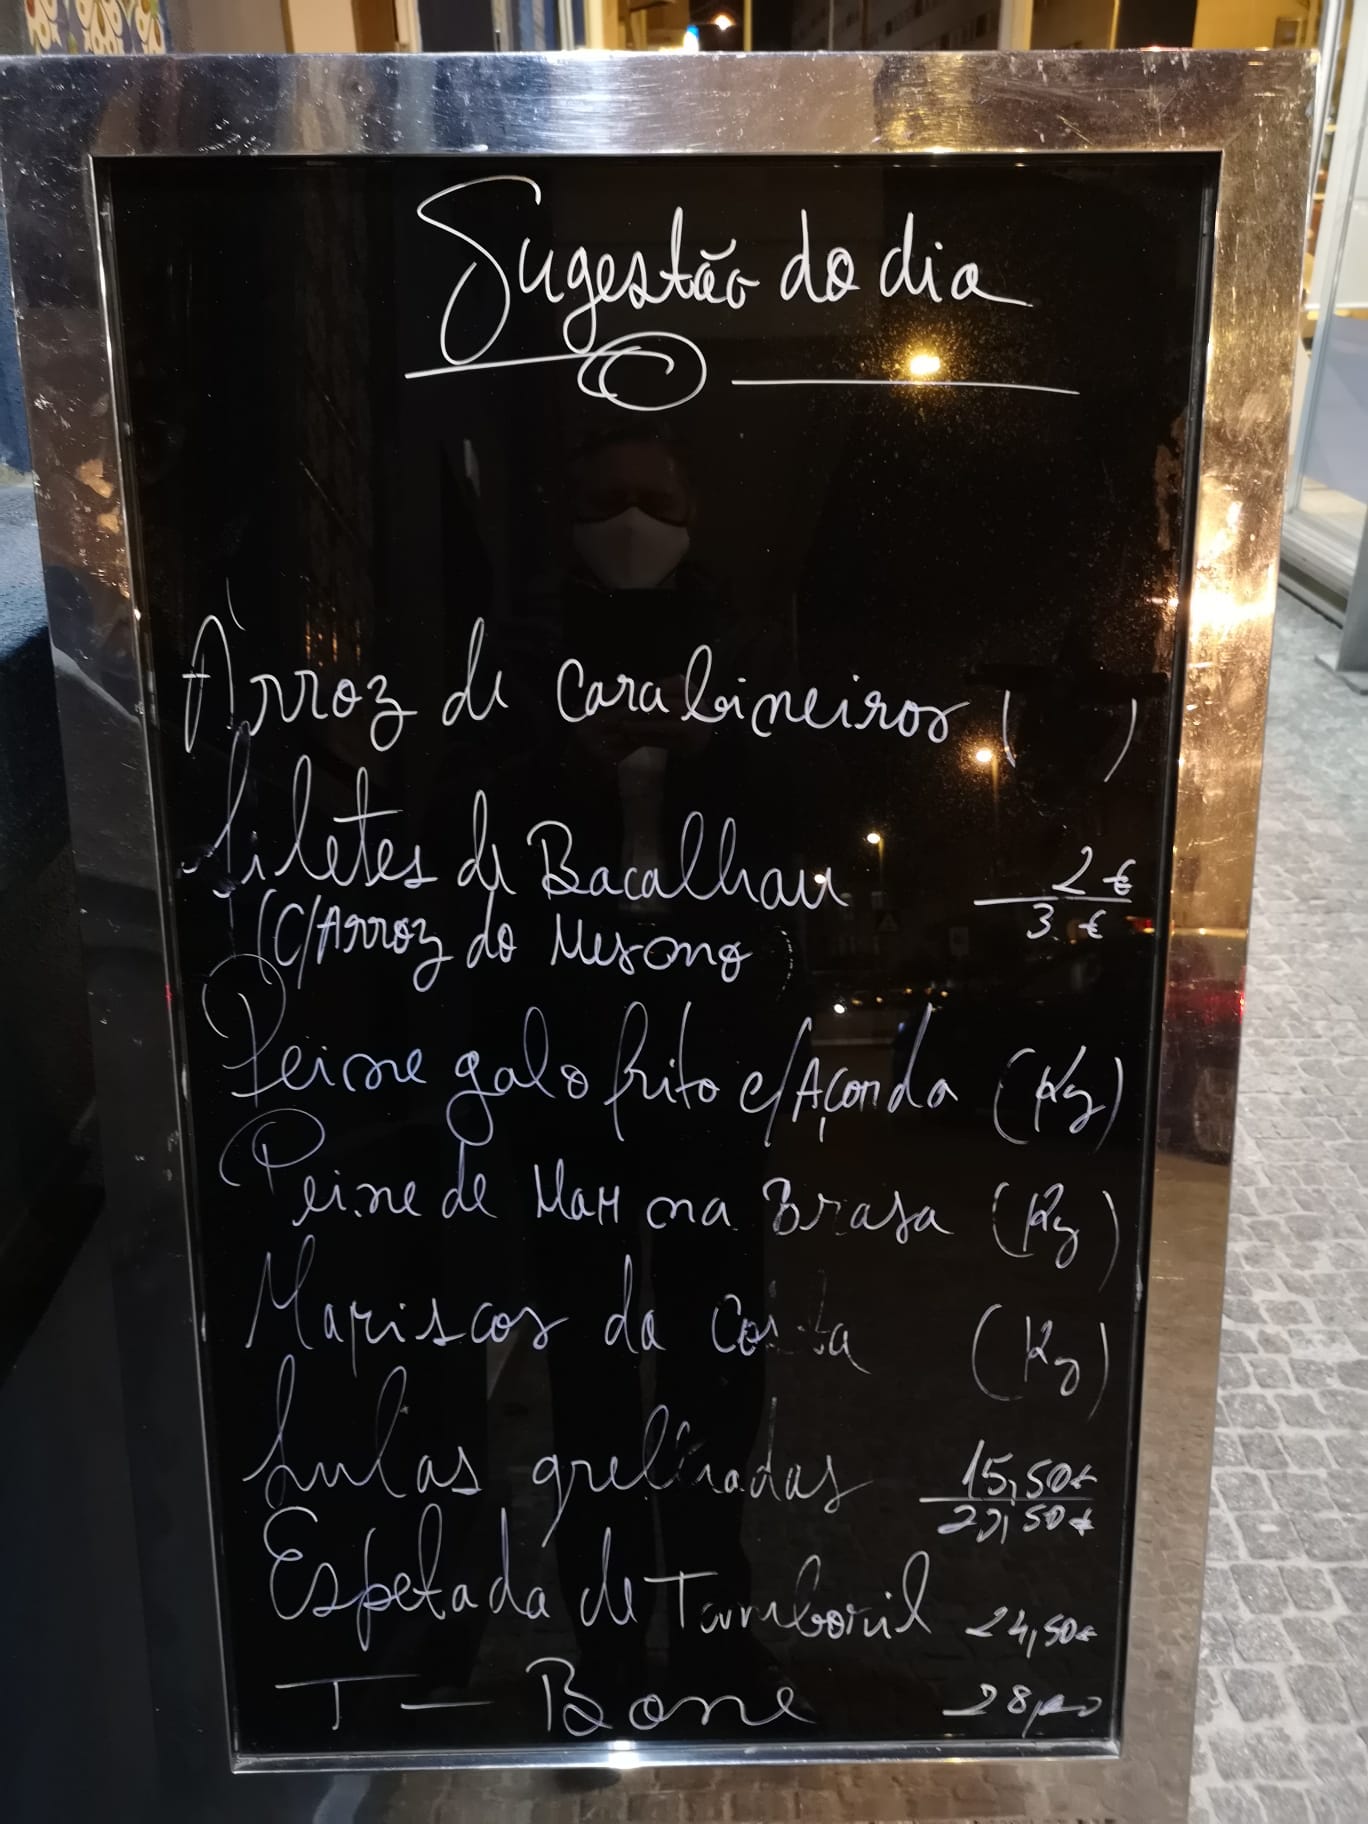 Sugestão do dia
Arroz de Carabineiros ( )
Filetes de Bacalhau 2 €
(C/Arroz do Mesmo) 3 €
Peixe galo frito c/Açorda (Kg)
Peixe de Mar na Brasa (Kg)
Mariscos da Costa (Kg)
Lulas grelhadas 15,50€
50€
Espetada de Tamboril 24,50€
T-Bone 28,